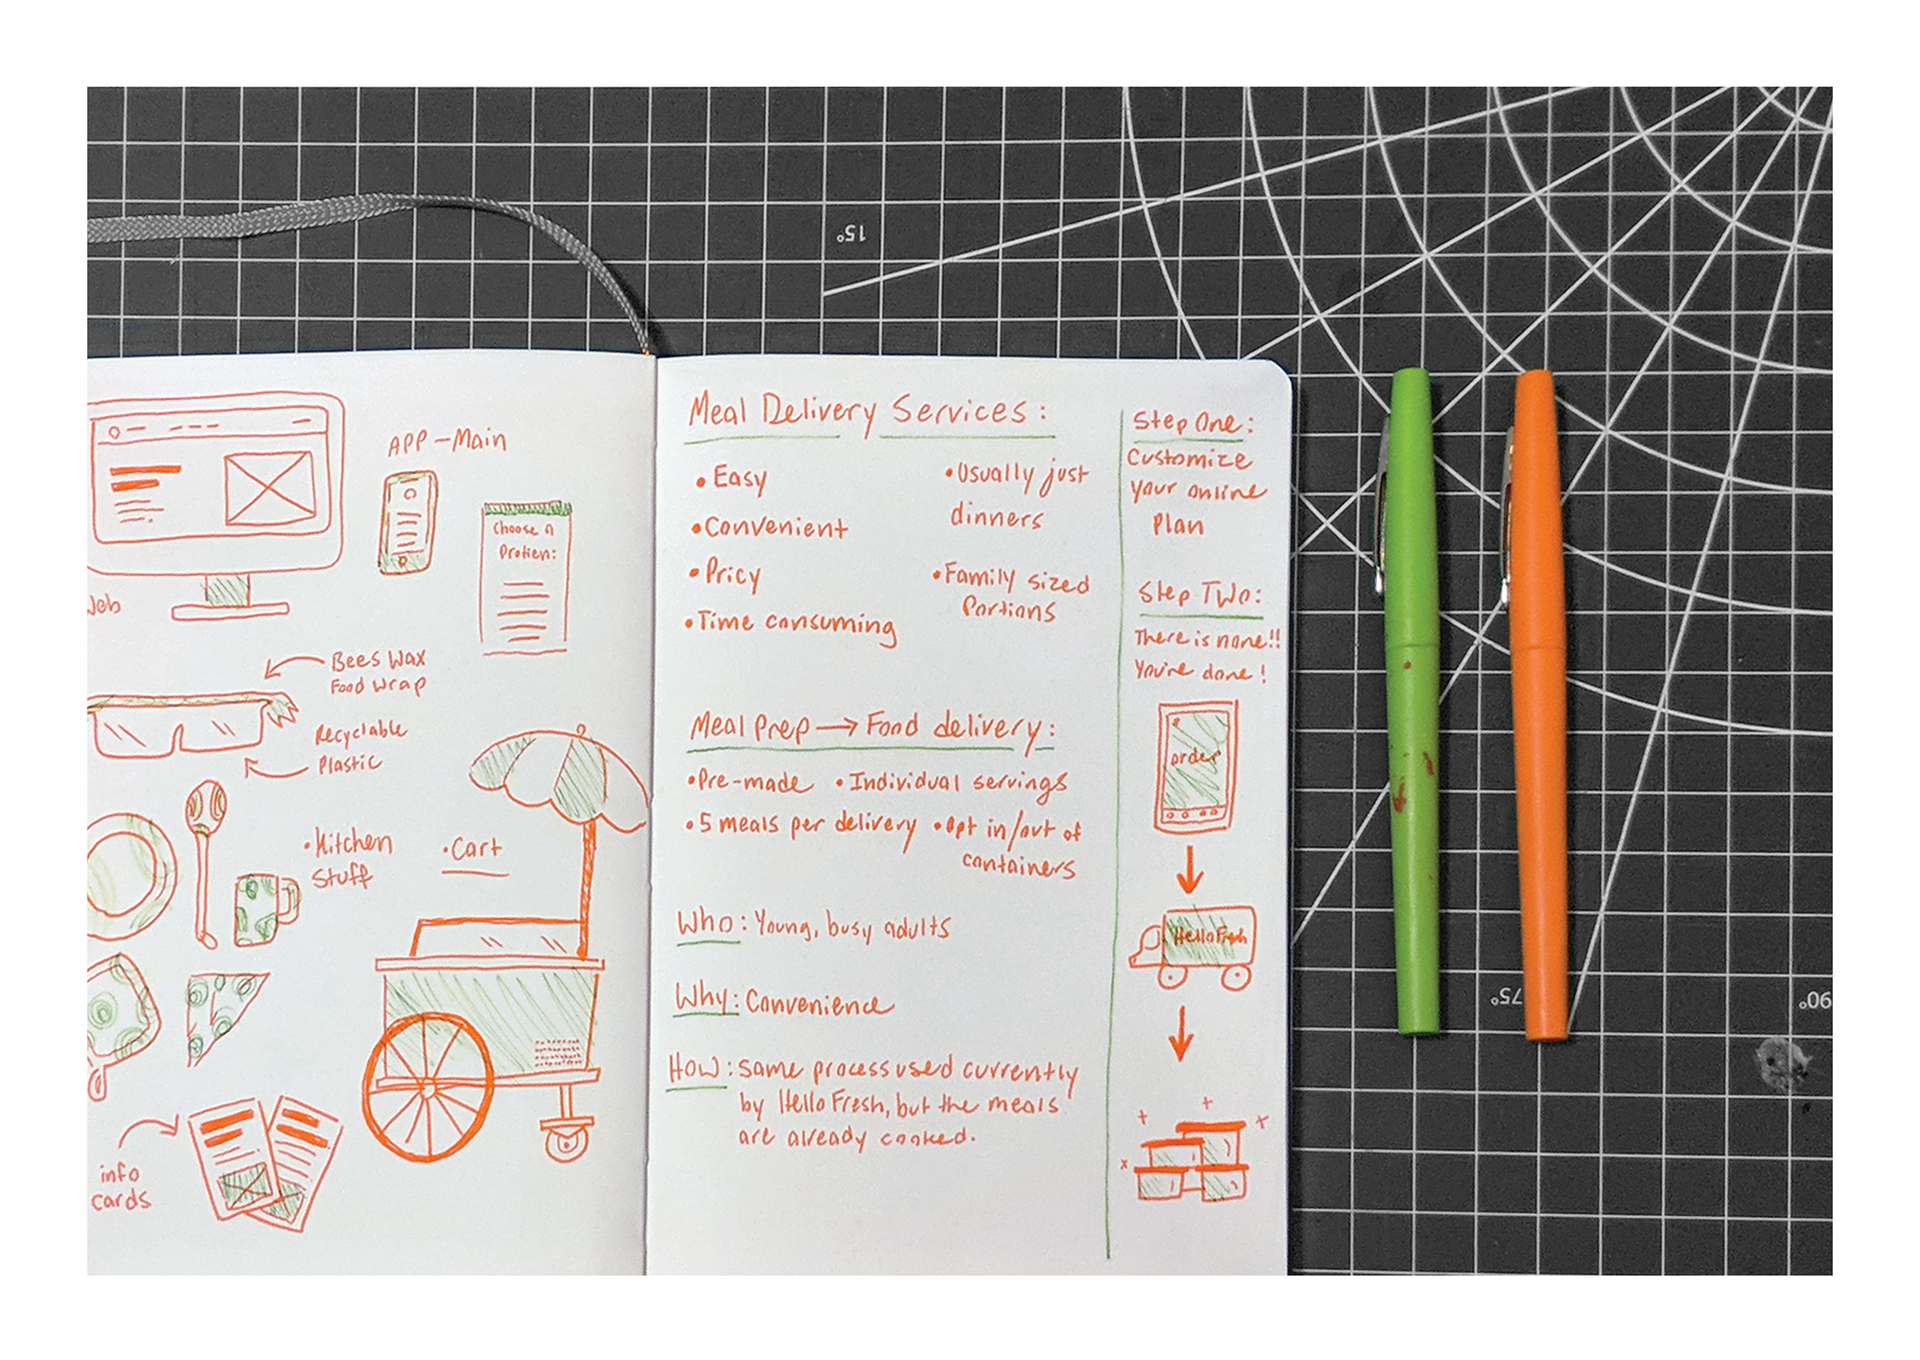 15°
APP-Main
Choose a
Protien:
Web
Bees Wax
Food Wrap
Recyclable
Plastic
•Kitchen
Stuff
•Cart
info
cards
Meal Delivery Services:
•Easy
•Convenient
•Pricy
•Time consuming
•Usually just
dinners
•Family sized
Portions
Meal Prep → Food delivery:
•Pre-made •Individual servings
•5 meals per delivery •Opt in/out of
containers
Who: Young, busy adults
Why: Convenience
How: Same process used currently
by Hello Fresh, but the meals
are already cooked.
Step One:
Customize
your online
Plan
Step Two:
There is none!!
You're done!
order
Hello Fresh
75°
90°